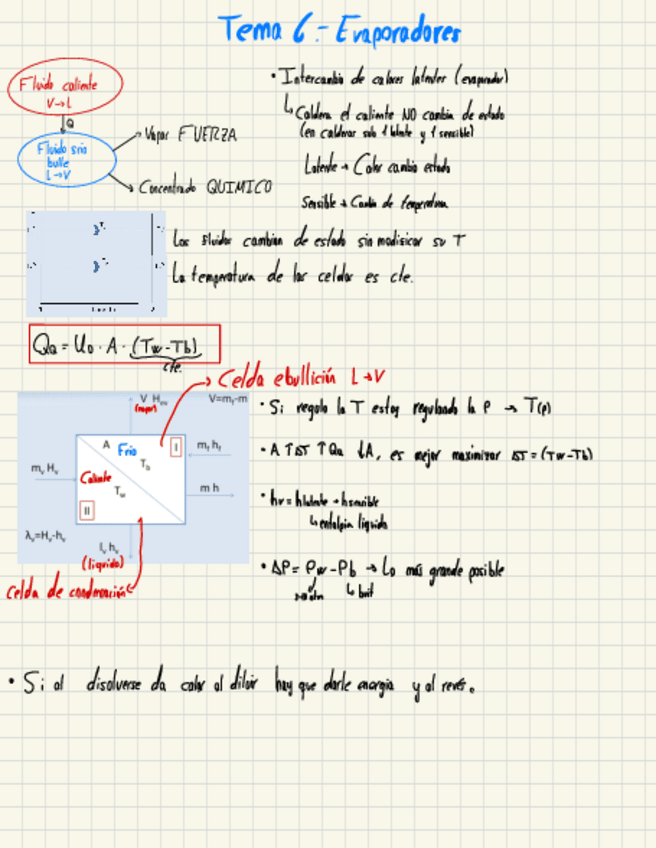 Tema 6.- Evaporadores
Fluido caliente
V→L
Q
Fluido frio
bulle
L→V
Vapor FUERZA
Concentrado QUIMICO
• Intercambio de calores latentes (evaporador)
Caldera el caliente NO cambia de estado
(en calderas solo 1 latente y 1 sensible)
Latente → Calor cambio estado
Sensible → Cambio de temperatura
Los fluidos cambian de estado sin modificar su T
La temperatura de las celdas es cte.
Qa = U0 · A · (Tw-Tb)
cte.
Celda ebullición L→V
V Hev
(vapor)
V=mf-m
A
Frio
I
Tb
mf hf
mv Hv
Caliente
Tw
m h
II
λv=Hv-hv
lv hv
(liquido)
Celda de condensación
• Si regulo la T estoy regulando la P → T(p)
• A↑ ΔT ↑Qa ↓A, es mejor maximizar ΔT=(Tw-Tb)
• hv= hlatente + hsensible
entalpia liquido
• ΔP= Pw-Pb → Lo más grande posible
• Si al disolverse da calor al diluir hay que darle energia y al revés.